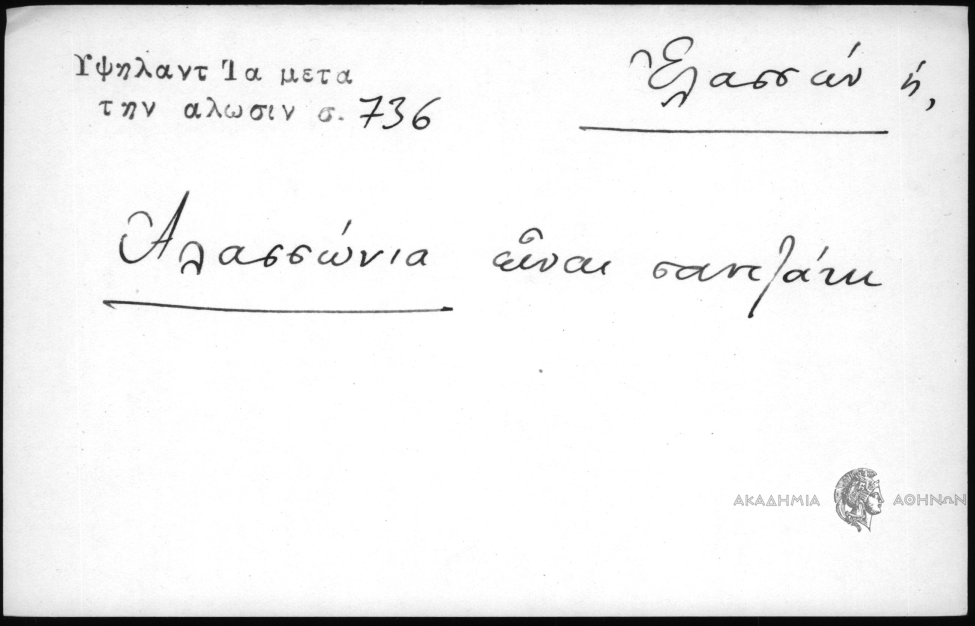 Υψηλαντ Τα μετα
την αλωσιν σ. 736
Ἐλασσών ἡ,
Ἀλασσώνια εἶναι σαντζάκι
ΑΚΑΔΗΜΙΑ ΑΘΗΝΩΝ